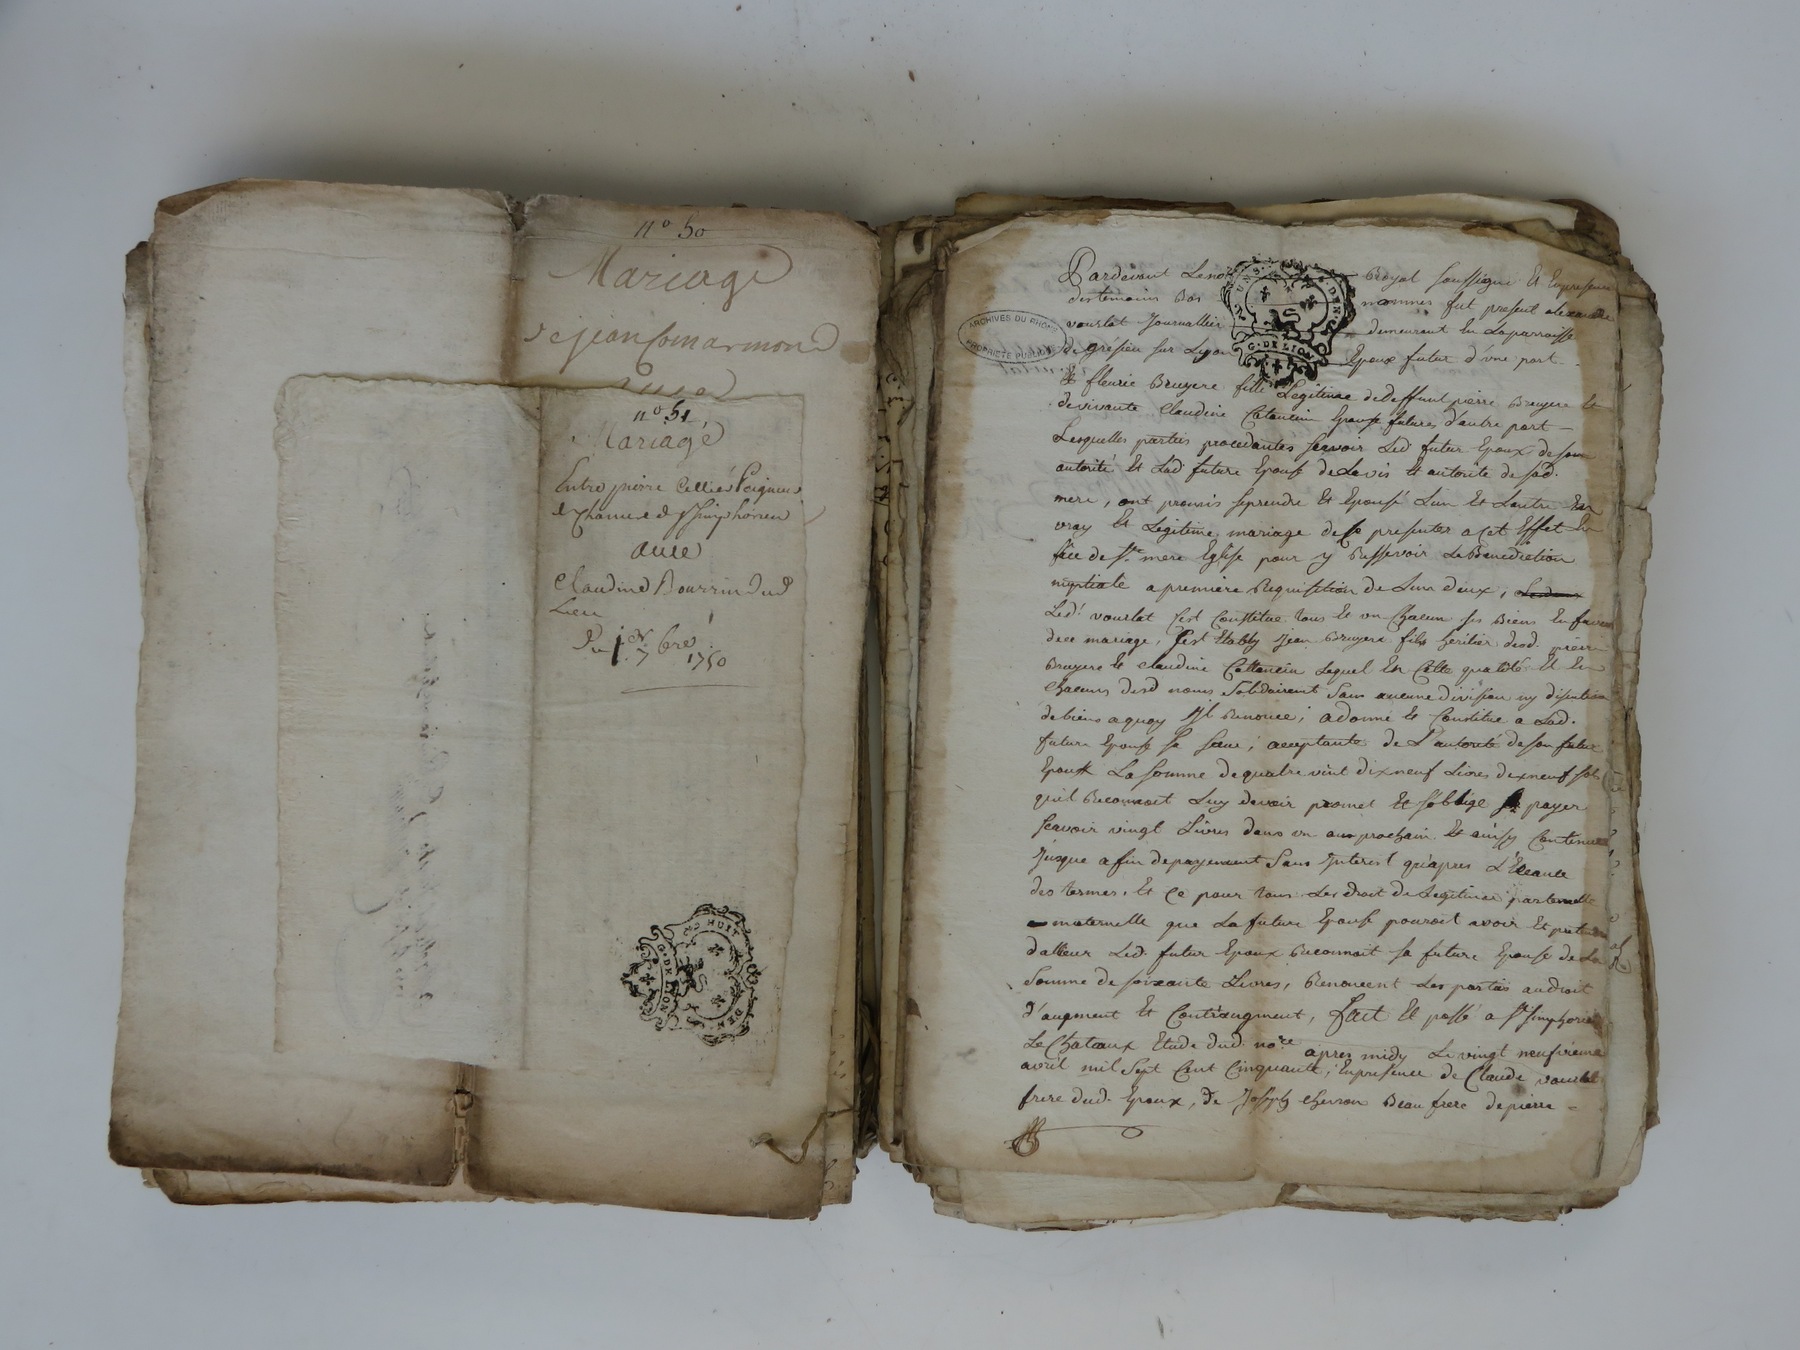 n° 50
Mariage
de jean Comarmond
n° 51
Mariage
Entre pierre Cellier Peigneur
de Chanvre de St Simphorien
avec
Claudine Bourrin dud
Lieu
Du 1er 7bre
1750
G. DE LYON
ARCHIVES DU RHÔNE
PROPRIETE PUBLIQUE
G. DE LION
Pardevant Le no Royal soussigné Et En presence
des temoins Bas nommes fut present alexandre
vourlat Journallier demeurant En La parroisse
de grésieu sur Lyon Epoux futur d'une part
Et fleurie Bruyere fille Legitime de deffunt pierre Bruyere Et
de vivante Claudine Cotancin Epouse future d'autre part
Lesquelles parties procedantes scavoir Led futur Epoux de son
autorité Et Lad. future Epouse de Lavis Et autorité de sad.
mere, ont promis se prendre Et Epousé Lun Et Lautre En
vray Et Legitime mariage de se presenter a cet Effet En
face de Ste mere Eglise pour y Ressevoir La Benediction
nuptiale a premiere Requisition de Lun deux,
Led. vourlat sest Constitué tous Et un Chacun ses Biens En faveur
de ce mariage, sest Etably Jean Bruyere fils heritier dud. pierre
Bruyere Et Claudine Cottancin Lequel En Cette qualité Et En
chacuns desd noms Solidairement Sans aucune division ny discution
de biens a quoy Il Renonce; a donné Et Constitué a Lad.
future Epouse sa soeur, acceptante de L'autorité de son futur
Epoux La somme de quatre vint dix neuf Livres dix neuf sols
qu'il Reconnoit Luy devoir promet Et s'oblige payer
scavoir vingt Livres dans un an prochain Et ainsy Continuer
Jusque a fin de payement Sans Interest qu'apres L'Eceance
des termes. Et Ce pour tous Les droit de Legitime paternelle
maternelle que La future Epouse pouroit avoir Et pretendre
dallieur Led. futur Epoux Reconnoit sa future Epouse de La
Somme de soixante Livres, Renoncent Les parties au droit
d'augment Et Contraugment, fait Et passé a St Simphorien
Le Chataux Etude dud. nore apres midy Le vingt neufvieme
avril mil Sept Cent Cinquante, En presence de Claude vourlat
frere dud. Epoux, de Joseph cheron Beau frere de pierre